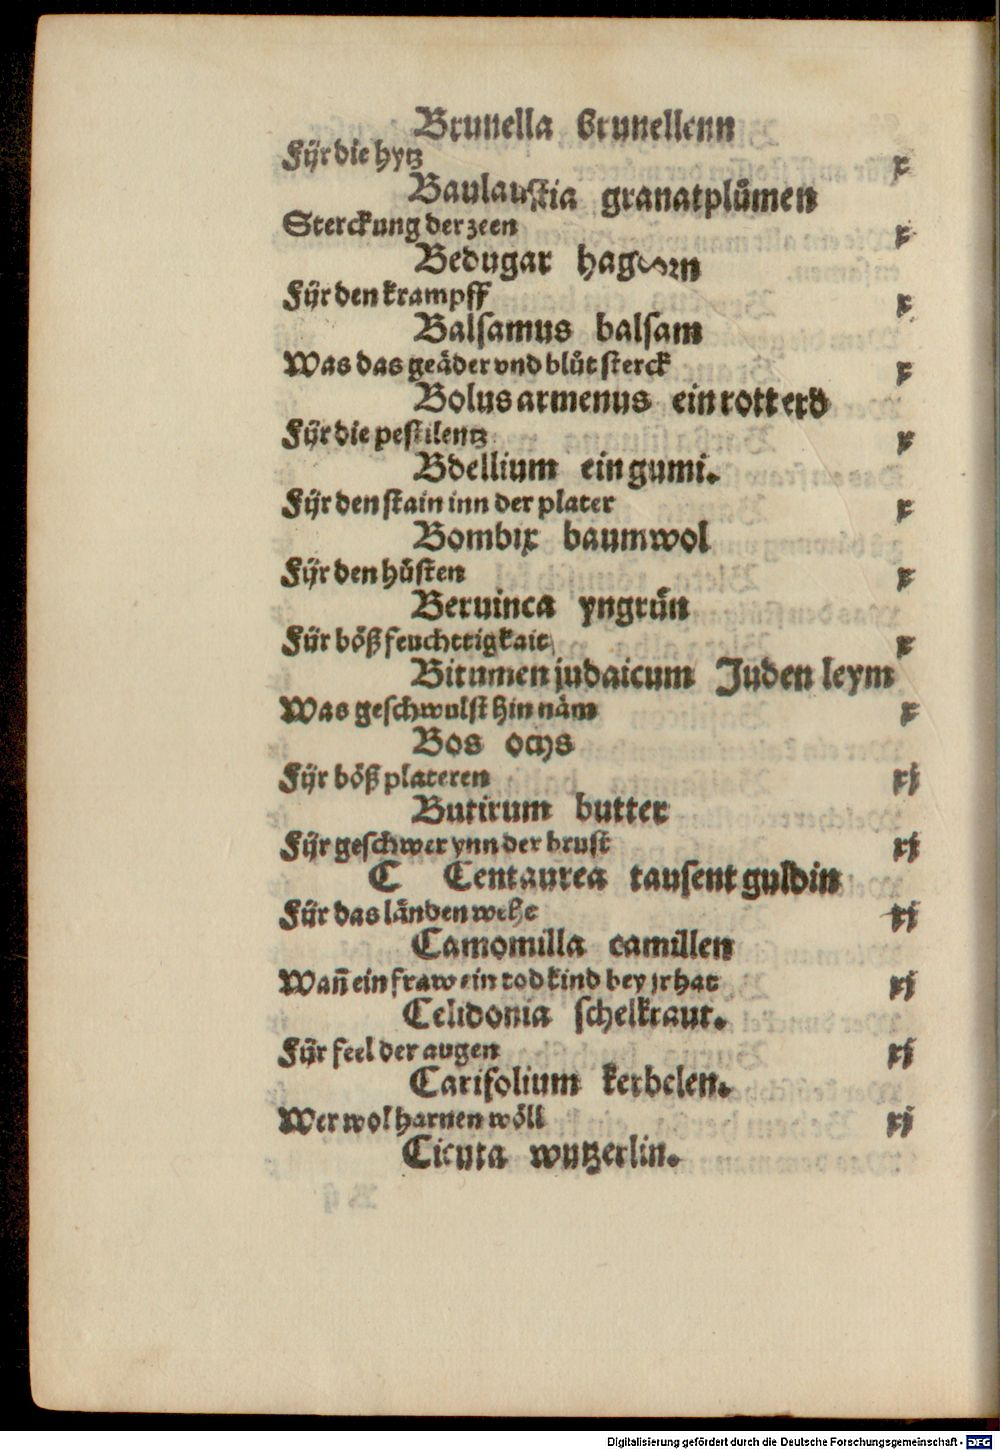 Brunella brunellenn
Für die hytz x
Baulaustia granatplůmen
Sterckung der zeen x
Bedugar hagdorn
Für den krampff x
Balsamus balsam
Was das geäder vnd blůt sterck x
Bolus armenus ein rott erd
Für die pestilentz x
Bdellium ein gumi.
Für den stain inn der plater x
Bombix baumwol
Für den hůsten x
Beruinca yngrůn
Für böß feuchttigkait x
Bitumen judaicum Juden leym
Was geschwulst hin näm x
Bos ochs
Für böß plateren xj
Butirum butter
Für geschwer ynn der brust xj
C Centaurea tausent guldin
Für das länden wehe xj
Camomilla camillen
Wañ ein fraw ein tod kind bey jr hat xj
Celidonia schelkraut.
Für feel der augen xj
Carifolium kerbelen.
Wer wol harnen wöll xj
Cicuta wutzerlin.
Digitalisierung gefördert durch die Deutsche Forschungsgemeinschaft - DFG